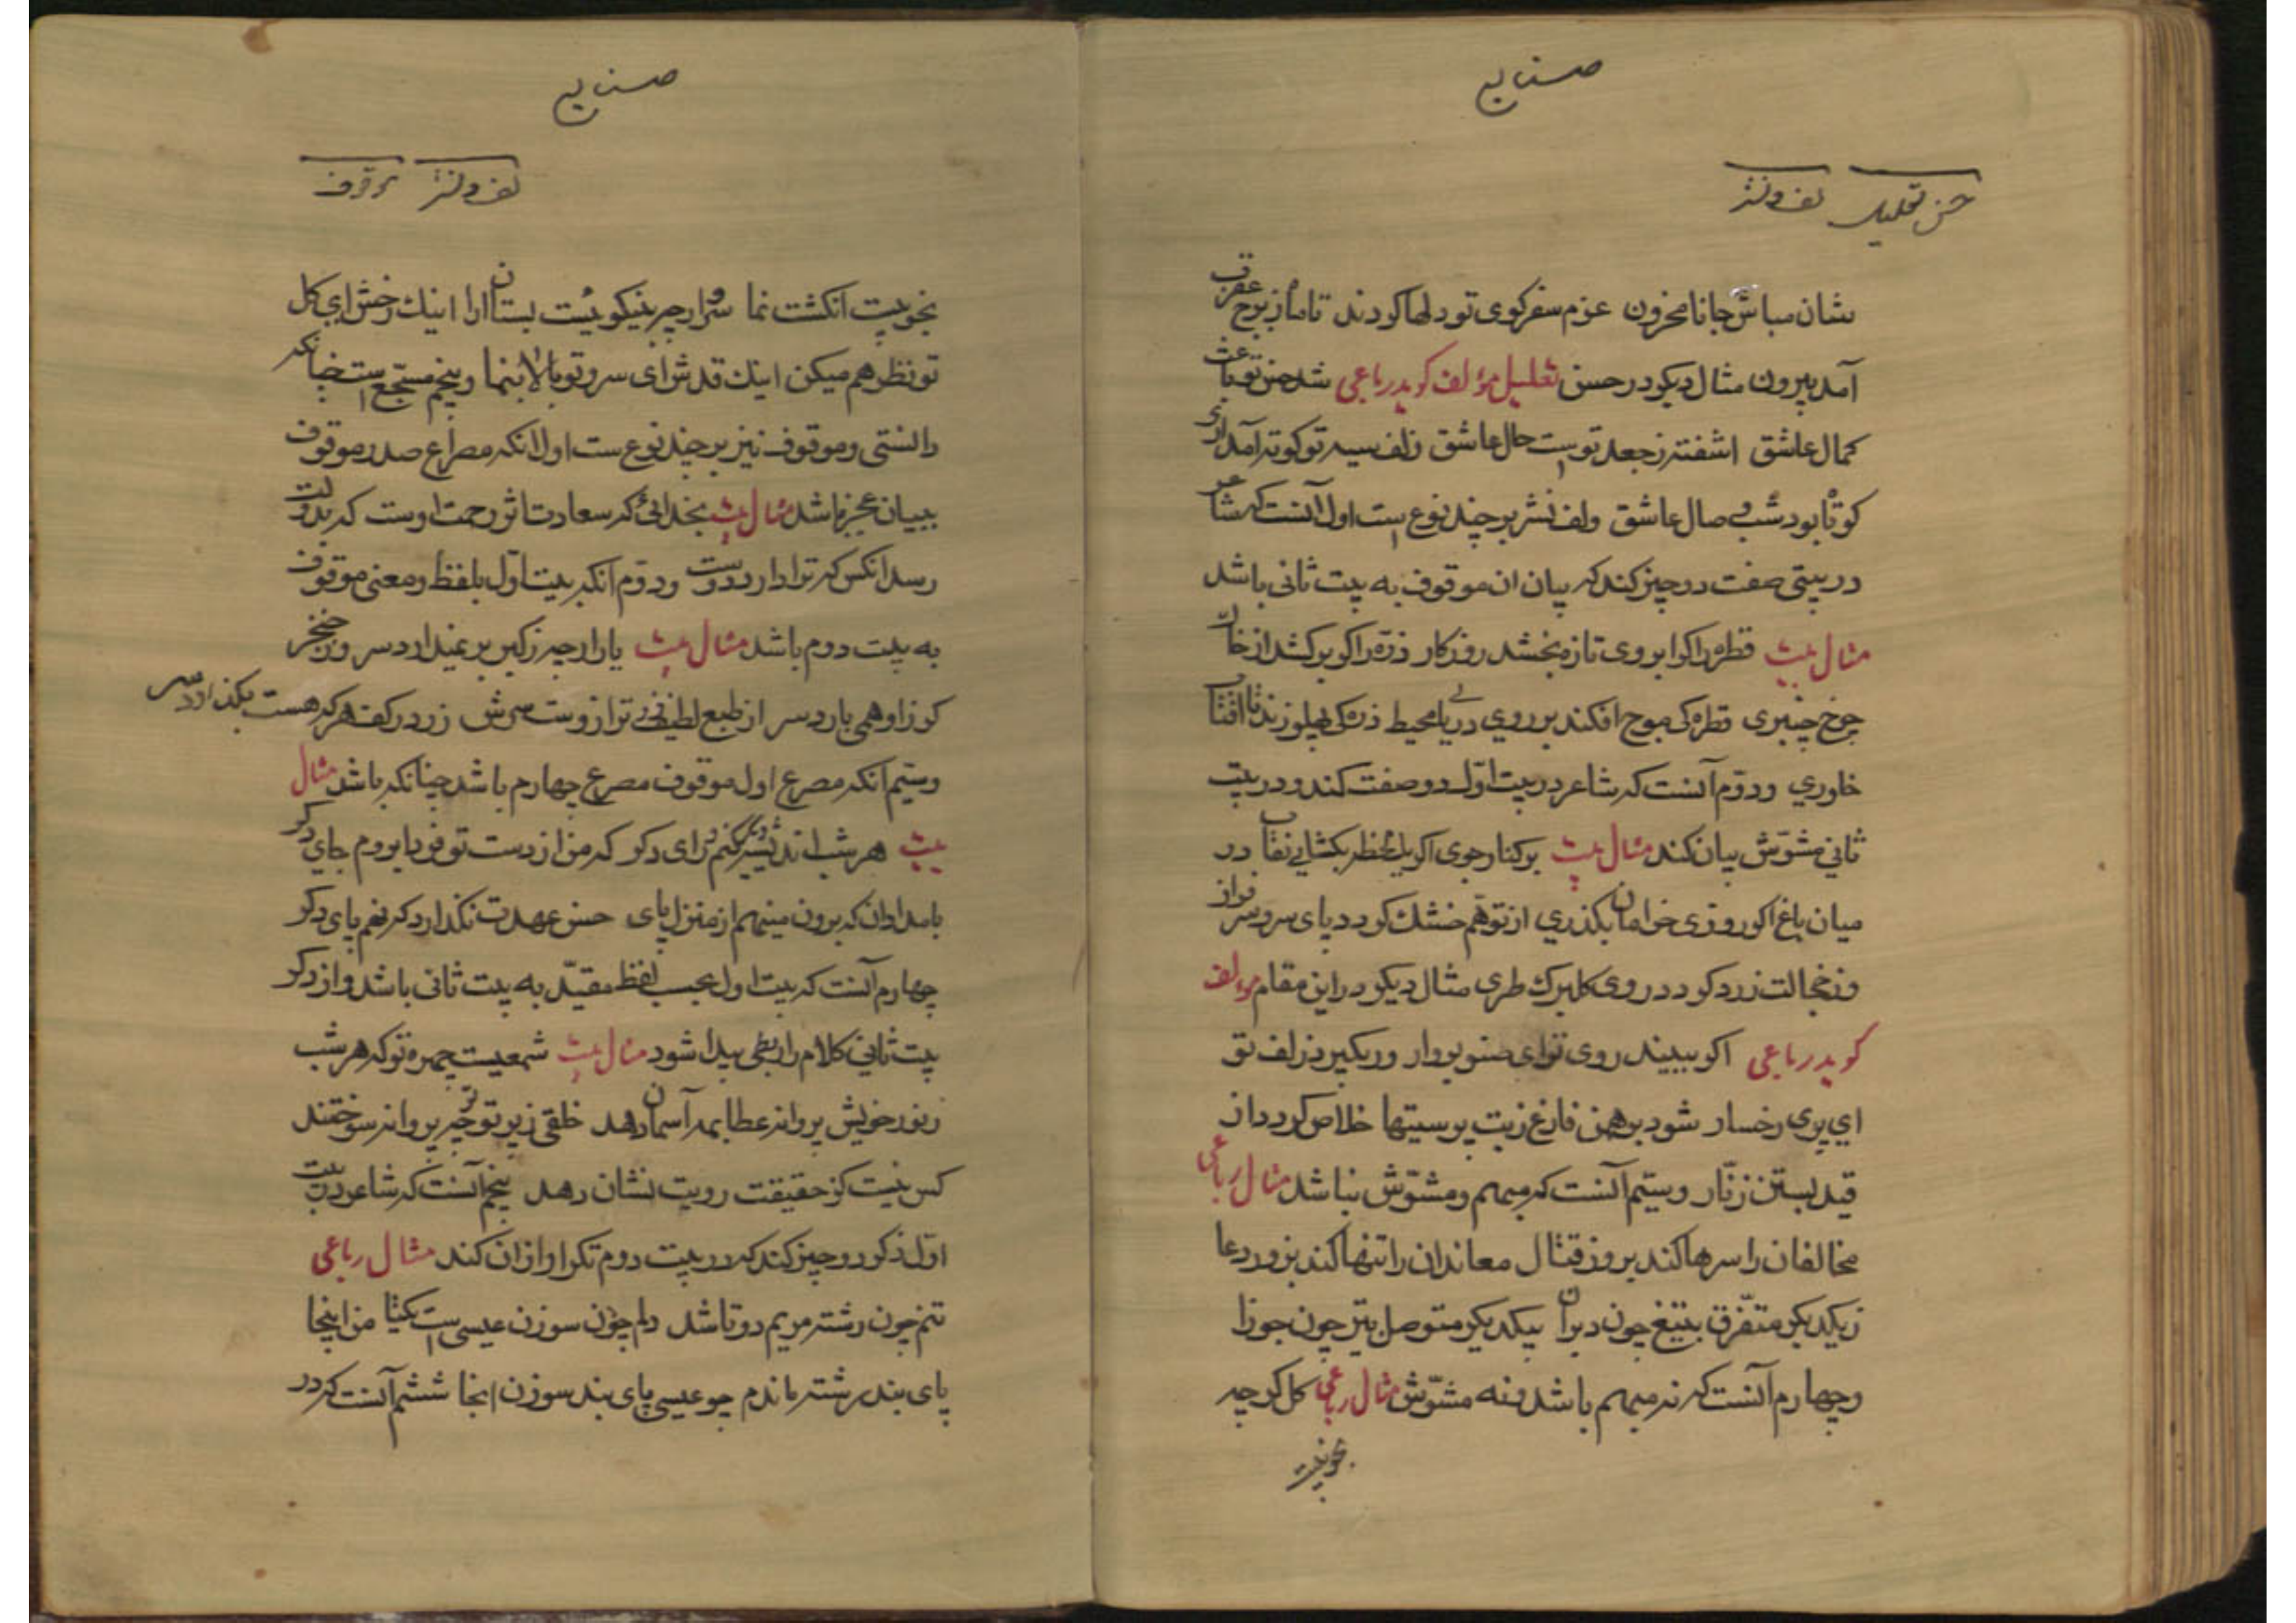 صنایع
حسن تعلیل لف و نشر
نشان مباش جانا محزون عزم سفر کوی تو دلها کردند تا ماه ز برج عقرب
آمد بیرون مثال دیکر در حسن تعلیل مؤلف کوید رباعی شد حسن تو باعث
کمال عاشق اشفته ز جعد توست حال عاشق زلف سیه تو کوته آمد آری
کوتاه بود شب وصال عاشق ولف نشر بر چند نوع است اول آنست که شاعر
در بیتی صفت دو چیز کند که بیان ان موقوف به بیت ثانی باشد
مثال بیت قطره را کر ابروی تازه بخشد روزکار ذره را کر برکشد از خاک
چرخ چنبری قطره کی موج افکند بر روی دریا محیط ذره کی پهلو زند با افتاب
خاوری و دوم آنست که شاعر در بیت اول دو صفت کند و در بیت
ثانی مشوش بیان کند مثال بیت برکنار جوی اکر یک لحظه بکشایی نقاب در
میان باغ اکر روزی خرامان بکذری از تو هم خشک کردد پای سرو سرفراز
وز خجالت زرد کردد روی کلبرک طری مثال دیکر در این مقام مؤلف
کوید رباعی اکر ببیند روی تو ای صنوبروار ور بکیرد زلف تو
ای پری رخسار شود برهمن فارغ ز بت پرستیها خلاص کردد از
قید بستن زنار و سیم آنست که مبهم و مشوش نباشد مثال رباعی
مخالفان را سرها کند بروز قتال معاندان را تنها کند بزور دعا
ز یکدیکر متفرق بتیغ چون دبران بیکدیکر متوصل بتیر چون جوزا
و چهارم آنست که نه مبهم باشد و نه مشوش مثال رباعی کل کرچه
بخوبیت
صنایع
لف و نشر موقوف
بخوبیت انکشت نما سرو ارچه بنیکویست بستان ارا اینک رخش ای کل
تو نظر هم میکن اینک قدش ای سرو تو بالا بنما و پنجم مسجع است چنانکه
دانستی و موقوف نیز بر چند نوع ست اول انکه مصراع صدر موقوف
ببیان عجز باشد مثال بیت بخدائی که سعادت اثر رحمت اوست که بدولت
رسد انکس که ترا دارد دوست و دوم انکه بیت اول بلفظ و معنی موقوف
به بیت دوم باشد مثال بیت یار ارچه ز کین بر نمیدارد سر وز خنجر
کو زاو همی بارد سر از طبع لطیف ترازوست سرش زر در کف هر که هست بکذارد سر
و سیم انکه مصرع اول موقوف مصرع چهارم باشد چنانکه باشد مثال
بیت هر شب اندیشه دیکر کنم و رای دکر که من از دست تو فردا بروم جای دکر
بامدادان که برون مینهم از منزل پای حسن عهدت نکذارد که نهم پای دکر
چهارم آنست که بیت اول بحسب لفظ مقید به بیت ثانی باشد و از ذکر
بیت ثانی کلام را ربطی پیدا شود مثال بیت شمعیست چهره تو که هر شب
ز نور خویش پروانه عطا بمه آسمان دهد خلقی ز پرتو تو چو پروانه سوختند
کس نیست کز حقیقت رویت نشان دهد پنجم آنست که شاعر در بیت
اول ذکر دو چیز کند که در بیت دوم تکرار از ان کند مثال رباعی
تنم چون رشته مریم دوتا شد دلم چون سوزن عیسی است یکتا من اینجا
پای بند رشته ماندم چو عیسی پای بند سوزن انجا ششم آنست که در